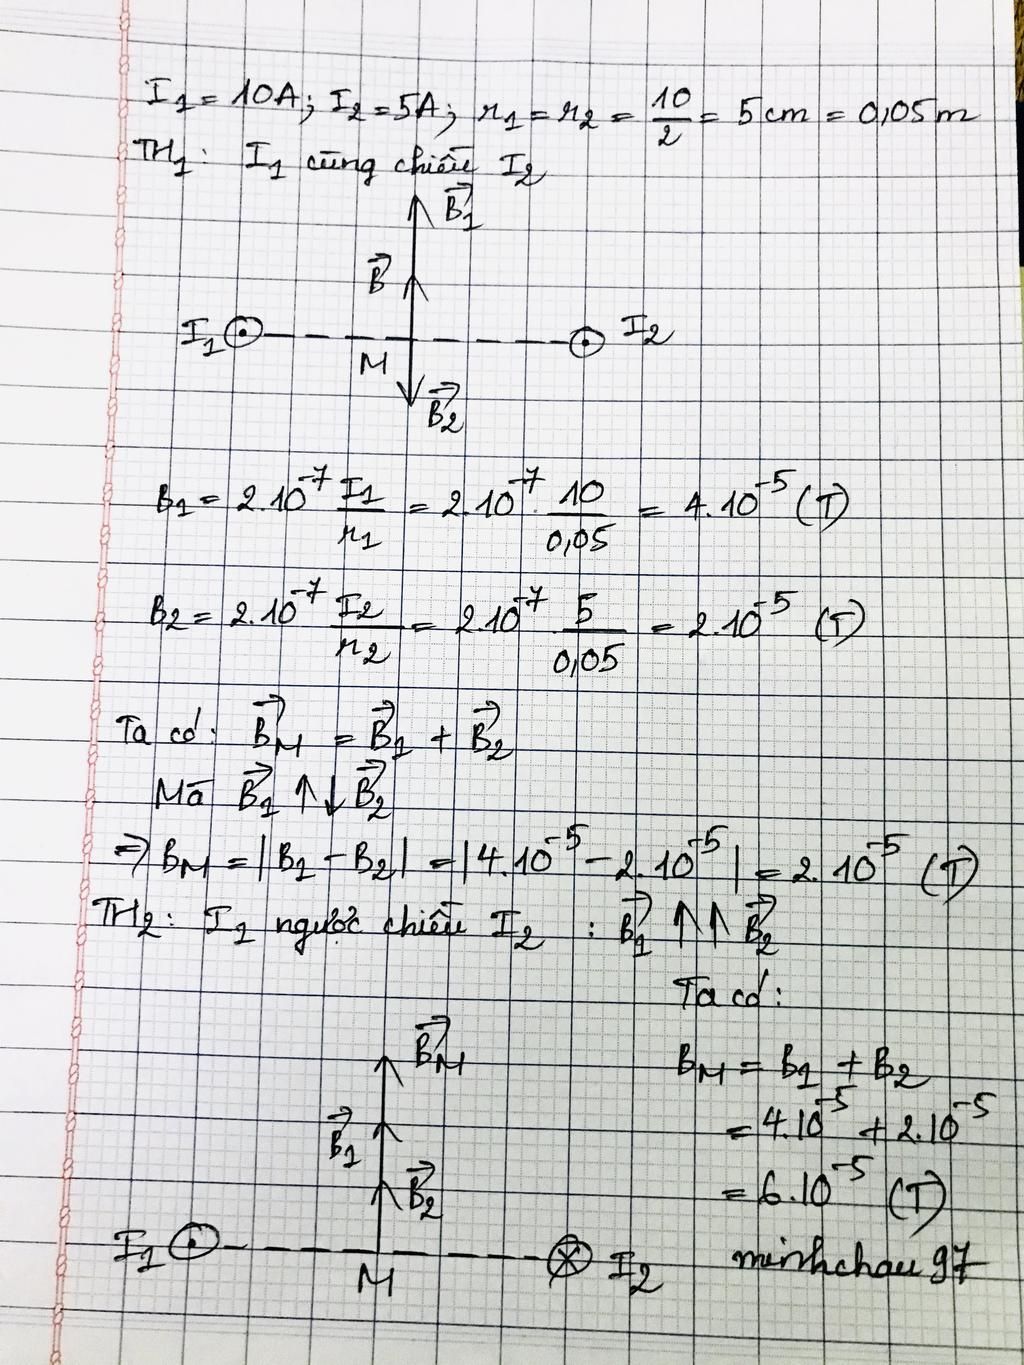 I₁ = 10A; I₂ = 5A; r₁ = r₂ = 10/2 = 5cm = 0,05m
TH₁: I₁ cùng chiều I₂
B⃗₁
B⃗
I₁ I₂
M
B⃗₂
B₁ = 2.10⁻⁷ I₁/r₁ = 2.10⁻⁷. 10/0,05 = 4.10⁻⁵ (T)
B₂ = 2.10⁻⁷ I₂/r₂ = 2.10⁻⁷ 5/0,05 = 2.10⁻⁵ (T)
Ta có: B⃗M = B⃗₁ + B⃗₂
Mà B⃗₁ ↑↓ B⃗₂
⇒ BM = |B₁ - B₂| = |4.10⁻⁵ - 2.10⁻⁵| = 2.10⁻⁵ (T)
TH₂: I₁ ngược chiều I₂ : B⃗₁ ↑↑ B⃗₂
Ta có:
B⃗M
BM = B₁ + B₂
B⃗₁ = 4.10⁻⁵ + 2.10⁻⁵
B⃗₂ = 6.10⁻⁵ (T)
I₁ M I₂
minhchau97